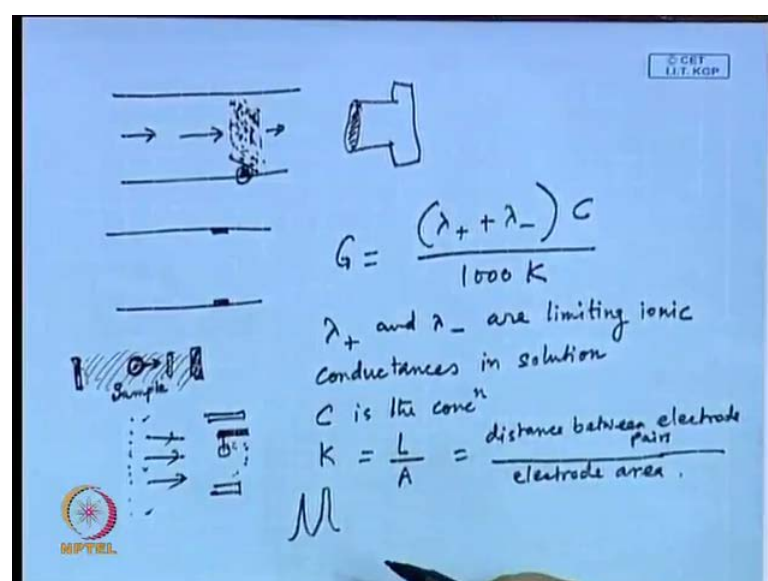 © CET
I.I.T. KGP
G = (λ₊ + λ₋) C / 1000 K
λ₊ and λ₋ are limiting ionic
conductances in solution
C is the concⁿ
K = L / A = distance between electrode pairs / electrode area.
Sample
NPTEL